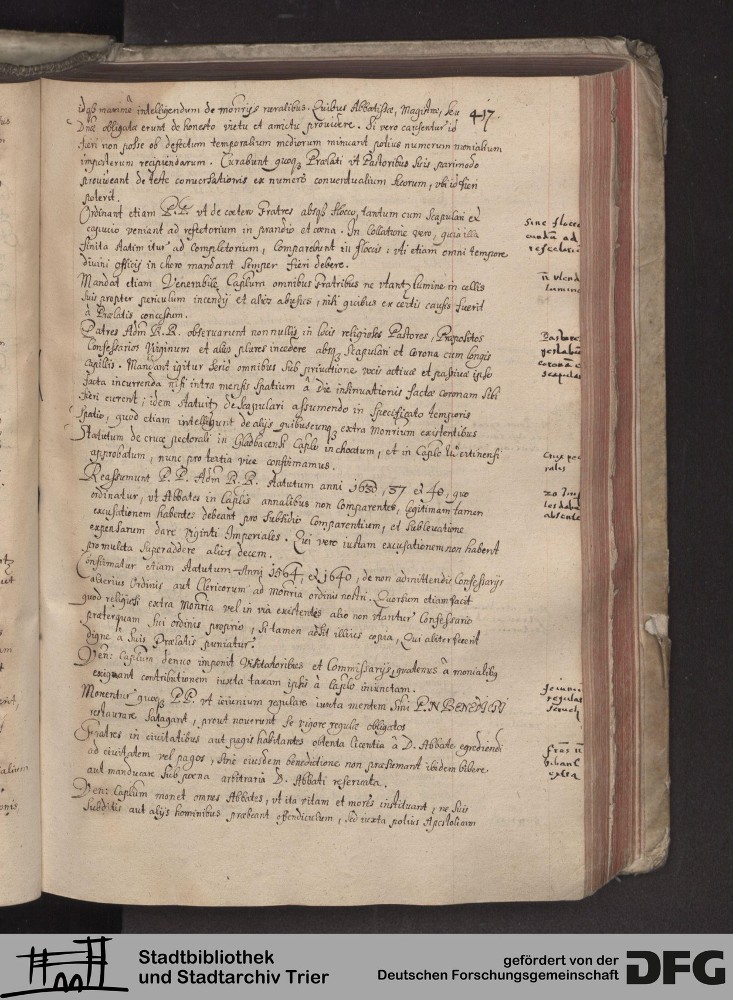 idq3 maximè intelligendum de monrijs ruralibus. Quibus Abbatissæ, Magistræ, seu
417.
Dnæ obligatæ erunt de honesto victu et amictu prouidere. Si vero causentur id
fieri non posse ob defectum temporalium mediorum minuant potius numerum monialium
imposterum recipiendarum. Curabunt quoq3 Prælati vt Pastoribus suis parimodo
prouideant de teste conuersationis ex numero conuentualium suorum, vbi id fieri
poterit.
Ordinant etiam P.P. vt de cætero Fratres absq3 flocco, tantum cum Scapulari et
capucio veniant ad refectorium in prandio et cœna. In Collatione vero, quia illa
finita statim itur ad Completorium, Comparebunt in floccis: vti etiam omni tempore
diuini officij in choro mandant semper fieri debere.
Mandat etiam Venerabile Caplum omnibus Fratribus ne vtantur lumine in cellis
suis propter periculum incendij et alios abusus, nisi quibus ex certis causis fuerit
à Prælatis concessum.
Patres Adm R.R. obseruarunt nonnullis in locis religiosos Pastores, Præpositos
Confessarios Virginum et alios plures incedere absq3 Scapulari et Corona cum longis
capillis. Mandant igitur serio omnibus sub priuatione vocis actiuæ et passiuæ ipso
facto incurrenda nisi intra mensis spatium à Die insinuationis factæ coronam sibi
fieri curent; idem statuitur de Scapulari assumendo in specificato temporis
spatio, quod etiam intelligunt de alijs quibuscunq3 extra Monrium existentibus
Statutum de cruce pectorali in Gladbacensi Caplo inchoatum, et in Caplo Werthinensi
approbatum, nunc pro tertia vice confirmamus.
Reassumunt P.P. Adm R.R. statutum anni 1630, 37 et 40, quo
ordinatur, vt Abbates in Caplis annalibus non Comparentes, legitimam tamen
excusationem habentes debeant pro subsidio Comparentium, et subleuatione
expensarum dare viginti Imperiales. Qui vero iustam excusationem non habent
pro mulcta superaddere alios decem.
Confirmatur etiam Statutum Anni 1564, et 1640, de non admittendis Confessarijs
alterius Ordinis aut Clericorum ad Monria ordinis nostri. Quorsum etiam facit
quod religiosi extra Monria vel in via existentes alio non vtantur Confessario
præterquam sui ordinis proprio, si tamen adsit illius copia, Qui aliter fecerit
digne à suis Prælatis puniatur.
Ven: Caplum denuo imponit Visitatoribus et Commissarijs, quatenus à monialibus
exigant contributionem iuxta taxam ipsis à Caplo iniunctam.
Monentur quoq3 P.P. vt ieiunium regulare iuxta mentem Smi P.N BENEDICTI
restaurare satagant, prout nouerunt se vigore regulæ obligatos
Fratres in ciuitatibus aut pagis habitantes obtenta licentia à D. Abbate egrediendi
ad ciuitatem vel pagos, sine eiusdem benedictione non præsumant ibidem bibere
aut manducare sub pœna arbitraria D. Abbati reseruata.
Ven: Caplum monet omnes Abbates, vt ita vitam et mores instituant, ne suis
subditis aut alijs hominibus præbeant offendiculum, sed iuxta potius Apostolicam
Sine flocco
ad
lumine
Scapulari
Crux
absente
regular
extra
Stadtbibliothek
und Stadtarchiv Trier
gefördert von der
Deutschen Forschungsgemeinschaft
DFG